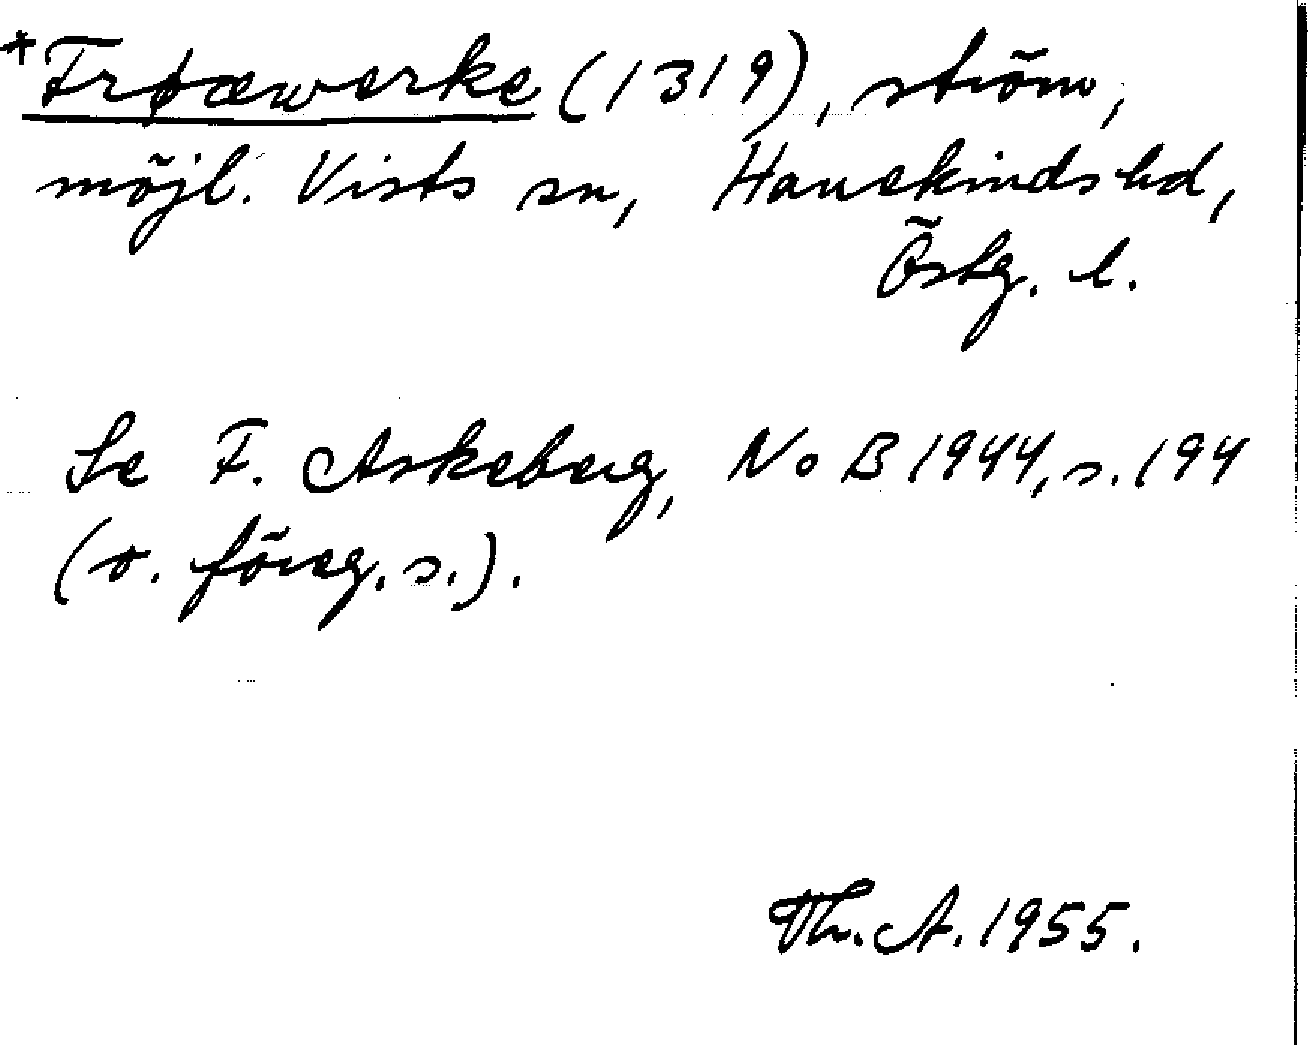 *Frøæwerke (1319), ström,
möjl. Vists sn, Hanekinds hd,
Östg. l.
Se F. Askeberg, NoB 1944, s. 194
(o. föreg. s.).
Th. A. 1955.